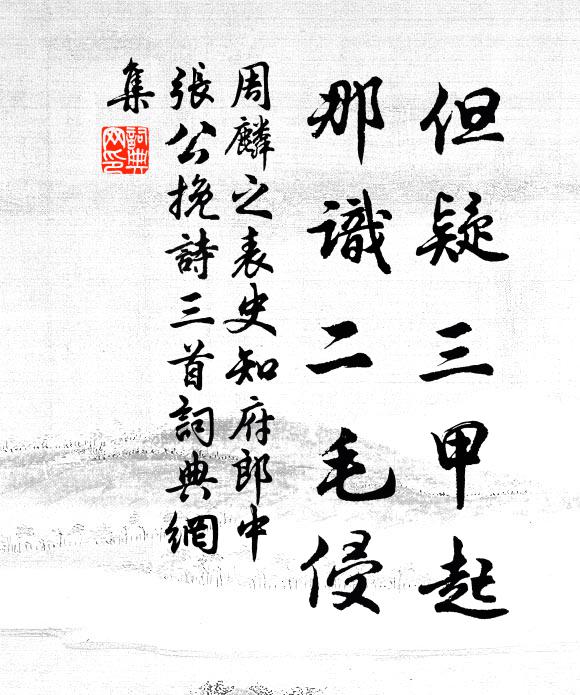 但疑三甲起
那識二毛侵
周麟之表史知府郎中
張公挽詩三首詞典網
集
詞典网印